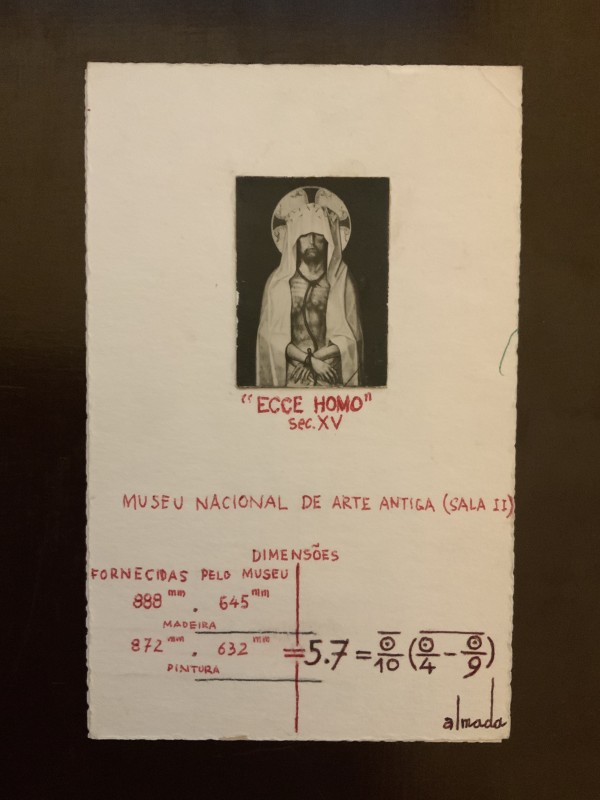 "ECCE HOMO"
sec. XV
MUSEU NACIONAL DE ARTE ANTIGA (SALA II)
DIMENSÕES
FORNECIDAS PELO MUSEU
888 mm . 645 mm
MADEIRA
872 mm . 632 mm = 5.7 = ʘ/10 (ʘ/4 - ʘ/9)
PINTURA
almada